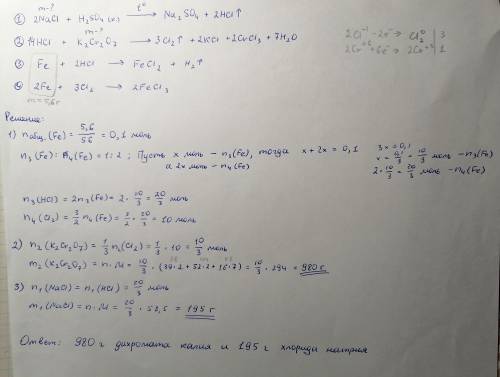 m-?
① 2NaCl + H₂SO₄ (к.) –t°→ Na₂SO₄ + 2HCl↑
m-?
② 14HCl + K₂Cr₂O₇ → 3Cl₂↑ + 2KCl + 2CrCl₃ + 7H₂O
2Cl⁻¹ - 2e⁻ → Cl₂⁰ | 3
2Cr⁺⁶ + 6e⁻ → 2Cr⁺³ | 1
③ Fe + 2HCl → FeCl₂ + H₂↑
④ 2Fe + 3Cl₂ → 2FeCl₃
m = 5,6 г
Решение:
1) nобщ.(Fe) = 5,6/56 = 0,1 моль
n₃(Fe) : n₄(Fe) = 1:2 ; Пусть x моль – n₃(Fe), тогда x + 2x = 0,1
а 2x моль – n₄(Fe)
3x = 0,1
x = 0,1/3 = 10/3 моль – n₃(Fe)
2·10/3 = 20/3 моль – n₄(Fe)
n₃(HCl) = 2n₃(Fe) = 2·10/3 = 20/3 моль
n₄(Cl₂) = 3/2 n₄(Fe) = 3/2 · 20/3 = 10 моль
2) n₂(K₂Cr₂O₇) = 1/3 n₂(Cl₂) = 1/3 · 10 = 10/3 моль
m₂(K₂Cr₂O₇) = n·M = 10/3 · (39·2 + 52·2 + 16·7) = 10/3 · 294 = 980 г
3) n₁(NaCl) = n₁(HCl) = 20/3 моль
m₁(NaCl) = n·M = 20/3 · 58,5 = 195 г
Ответ: 980 г дихромата калия и 195 г хлорида натрия